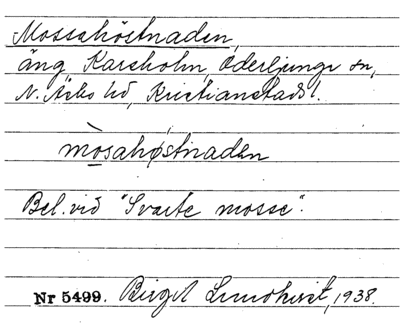 Mossahöstnaden,
äng, Karsholm, Oderljunga sn,
N. Åsbo hd, Kristianstads l.
mosahøstnaden
Bel. vid "Svarte mosse".
Nr 5499. Birgit Lundkvist, 1938.